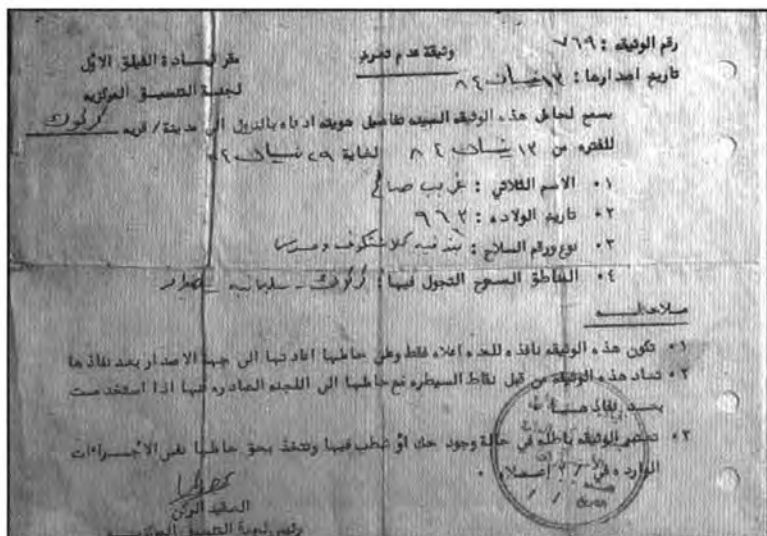 رقم الوثيقه : ٧٦٩
وثيقة عدم تعرض
مقر قيادة الفيلق الاول
تاريخ اصدارها : ١٣ نيسان ٨٤
لجنة التنسيق المركزيه
كركوك
يسمح لحامل هذه الوثيقه المبينه تفاصيل هويته ادناه بالنزول الى مدينة / قريه
للفتره من ١٣ نيسان ٨٤ لغاية ٢٩ نيسان ٨٤
١٠ الاسم الثلاثي : غريب صالح
٢٠ تاريخ الولاده : ٩٦٢
٣٠ نوع ورقم السلاح : بندقيه كلاشنكوف
٤٠ المناطق المسموح التجول فيها : كركوك - سليمانيه
ملاحظـــه
١٠ تكون هذه الوثيقه نافذه للمده اعلاه فقط وعلى حاملها اعادتها الى جهة الاصدار بعد نفاذها
٢٠ تصاد هذه الوثيقه من قبل نقاط السيطره مع حاملها الى اللجنه الصادره منها اذا استخدمت
بعد نفاذهـــا
٣٠ تعتبر الوثيقه باطله في حالة وجود حك او شطب فيها وتتخذ بحق حاملها نفس الاجـــراءات
الوارده في اعــلاه ٠
العقيد الركن
رئيس لجنة التنسيق المركزيـــه